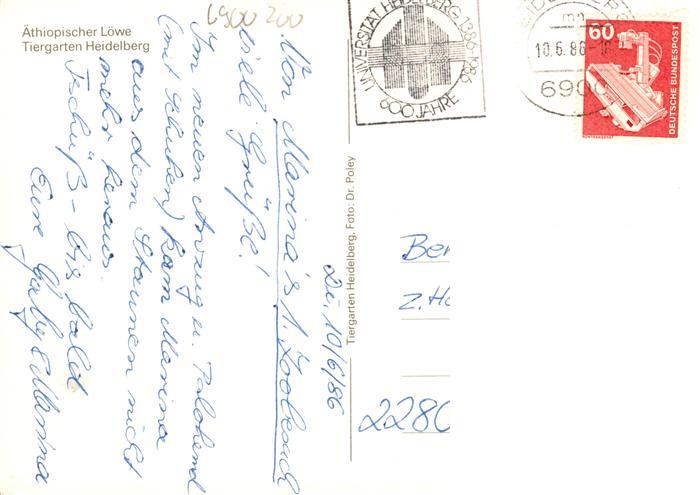 Äthiopischer Löwe
Tiergarten Heidelberg
6900 200
UNIVERSITÄT HEIDELBERG 1386-1986
600 JAHRE
10.6.86-18
6900
60
DEUTSCHE BUNDESPOST
Di. 10/6/86
Von Marina's 1. Zoobesuch
viele Grüße!
Im neuen Anzug u.
(mit Schuhen) kam Marina
aus dem Staunen nicht
mehr heraus.
Tschüß - bis bald
Eure Gaby & Marina
Tiergarten Heidelberg, Foto: Dr. Poley
Ber
z. Ho
2280